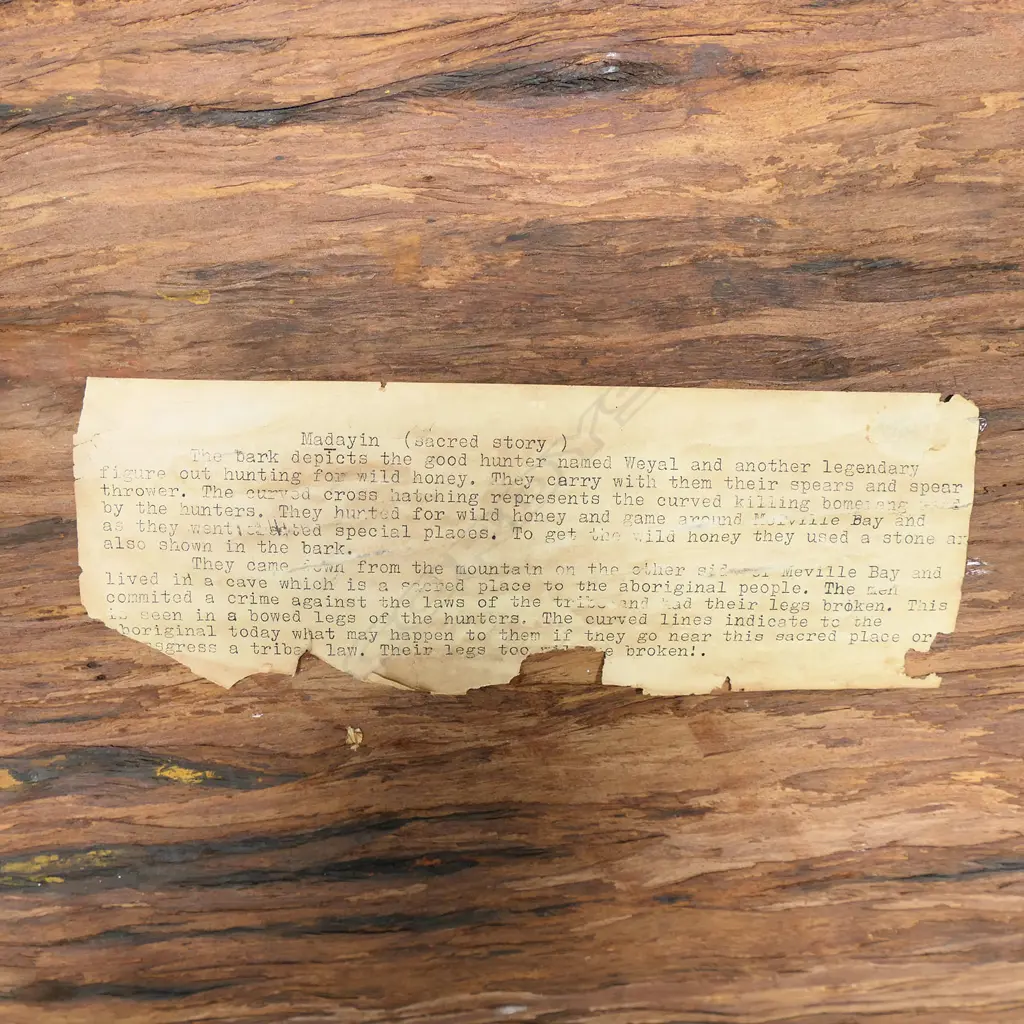 Madayin (sacred story )
The bark depicts the good hunter named Weyal and another legendary
figure out hunting for wild honey. They carry with them their spears and spear
thrower. The curved cross hatching represents the curved killing bomerang
by the hunters. They hunted for wild honey and game around Melville Bay and
as they went special places. To get the wild honey they used a stone
also shown in the bark.
They came down from the mountain on the other side of Meville Bay and
lived in a cave which is a sacred place to the aboriginal people. The men
commited a crime against the laws of the tribe and had their legs broken. This
is seen in a bowed legs of the hunters. The curved lines indicate to the
boriginal today what may happen to them if they go near this sacred place or
gress a tribal law. Their legs too will be broken!.